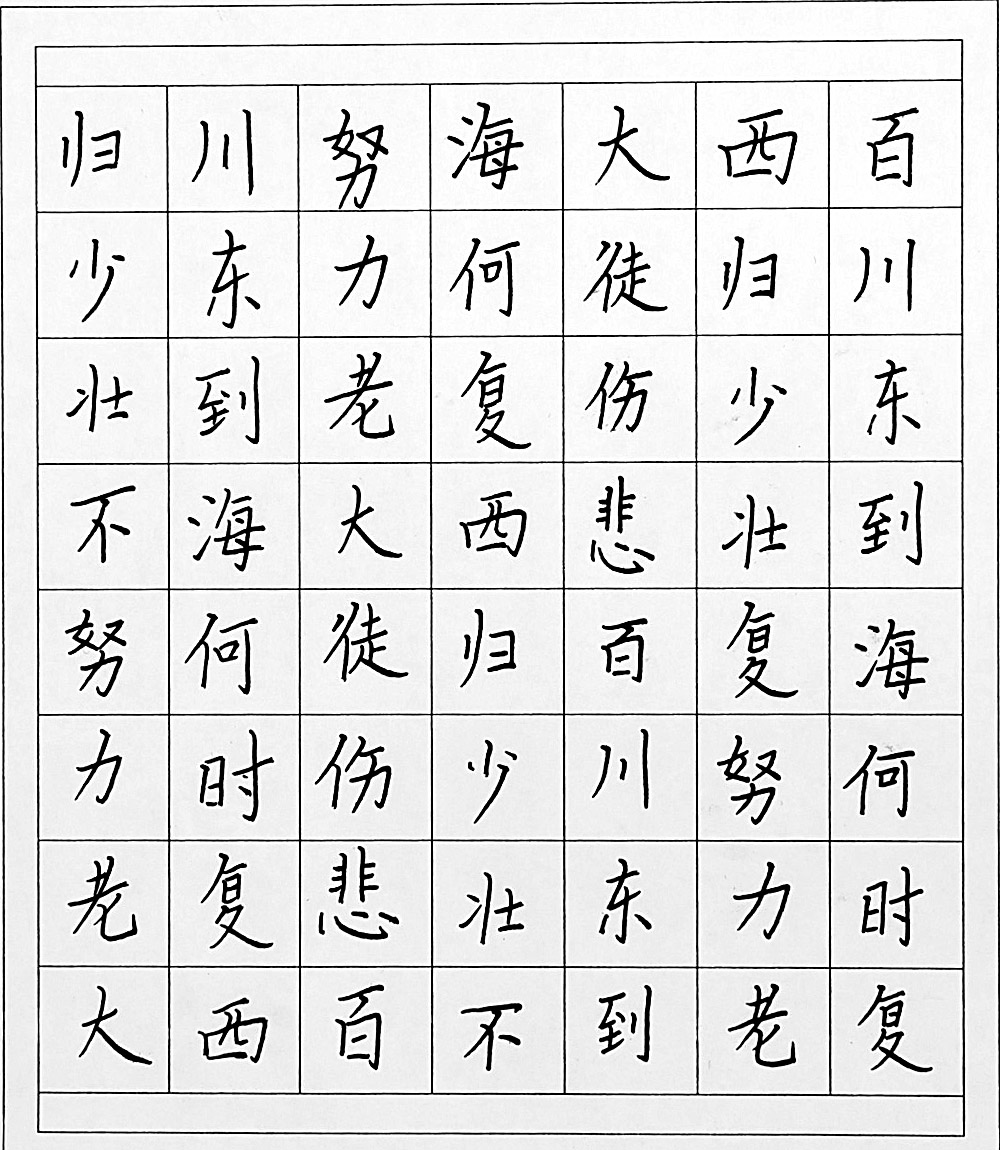 百川东到海何时复
西归少壮复努力老
大徒伤悲百川东到
海何复西归少壮不
努力老大徒伤悲百
川东到海何时复西
归少壮不努力老大